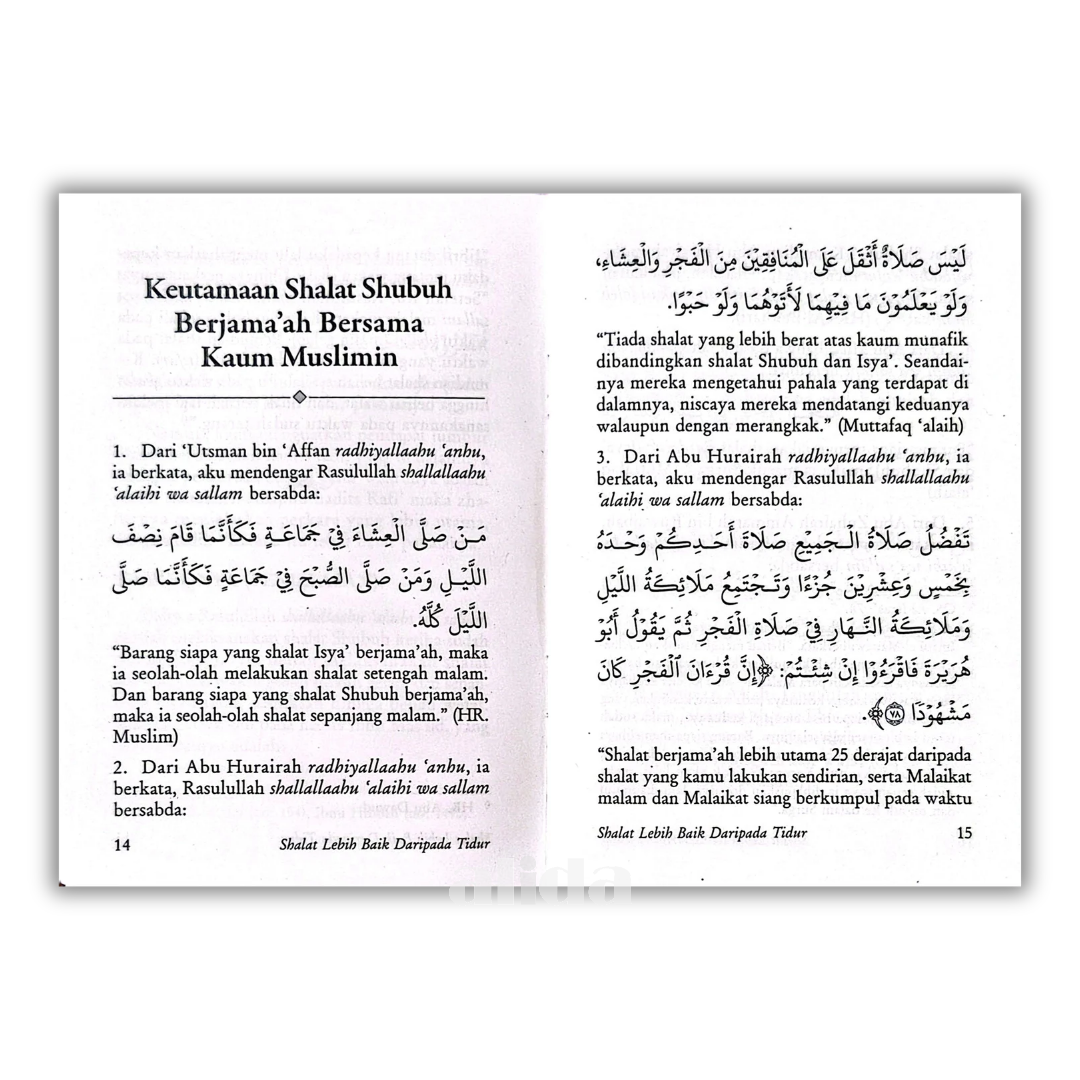 Keutamaan Shalat Shubuh
Berjama’ah Bersama
Kaum Muslimin
1. Dari ‘Utsman bin ‘Affan radhiyallaahu ‘anhu,
ia berkata, aku mendengar Rasulullah shallallaahu
‘alaihi wa sallam bersabda:
مَـنْ صَلَّى الْعِشَاءَ فِيْ جَمَاعَـةٍ فَكَأَنَّمَا قَامَ نِصْفَ
اللَّيْـلِ وَمَنْ صَلَّى الصُّبْحَ فِيْ جَمَاعَةٍ فَكَأَنَّمَا صَلَّى
اللَّيْلَ كُلَّهُ.
“Barang siapa yang shalat Isya’ berjama’ah, maka
ia seolah-olah melakukan shalat setengah malam.
Dan barang siapa yang shalat Shubuh berjama’ah,
maka ia seolah-olah shalat sepanjang malam.” (HR.
Muslim)
2. Dari Abu Hurairah radhiyallaahu ‘anhu, ia
berkata, Rasulullah shallallaahu ‘alaihi wa sallam
bersabda:
14 Shalat Lebih Baik Daripada Tidur
لَيْسَ صَلَاةٌ أَثْقَلَ عَلَى الْمُنَافِقِيْنَ مِنَ الْفَجْرِ وَالْعِشَاءِ،
وَلَوْ يَعْلَمُوْنَ مَا فِيْهِمَا لَأَتَوْهُمَا وَلَوْ حَبْوًا.
“Tiada shalat yang lebih berat atas kaum munafik
dibandingkan shalat Shubuh dan Isya’. Seandai-
nya mereka mengetahui pahala yang terdapat di
dalamnya, niscaya mereka mendatangi keduanya
walaupun dengan merangkak.” (Muttafaq ‘alaih)
3. Dari Abu Hurairah radhiyallaahu ‘anhu, ia
berkata, aku mendengar Rasulullah shallallaahu
‘alaihi wa sallam bersabda:
تَفْضُلُ صَلَاةُ الْـجَمِيْعِ صَلَاةَ أَحَـدِكُمْ وَحْـدَهُ
بِخَمْسٍ وَعِشْرِيْنَ جُزْءًا وَتَـجْتَمِعُ مَلَائِكَةُ اللَّيْلِ
وَمَلَائِكَةُ النَّـهَارِ فِيْ صَلَاةِ الْفَجْرِ ثُمَّ يَقُوْلُ أَبُوْ
هُرَيْرَةَ فَاقْرَءُوْا إِنْ شِئْـتُمْ: ﴿إِنَّ قُرْءَانَ ٱلْفَجْرِ كَانَ
مَشْهُوْدًا ٧٨﴾.
“Shalat berjama’ah lebih utama 25 derajat daripada
shalat yang kamu lakukan sendirian, serta Malaikat
malam dan Malaikat siang berkumpul pada waktu
Shalat Lebih Baik Daripada Tidur 15
alida